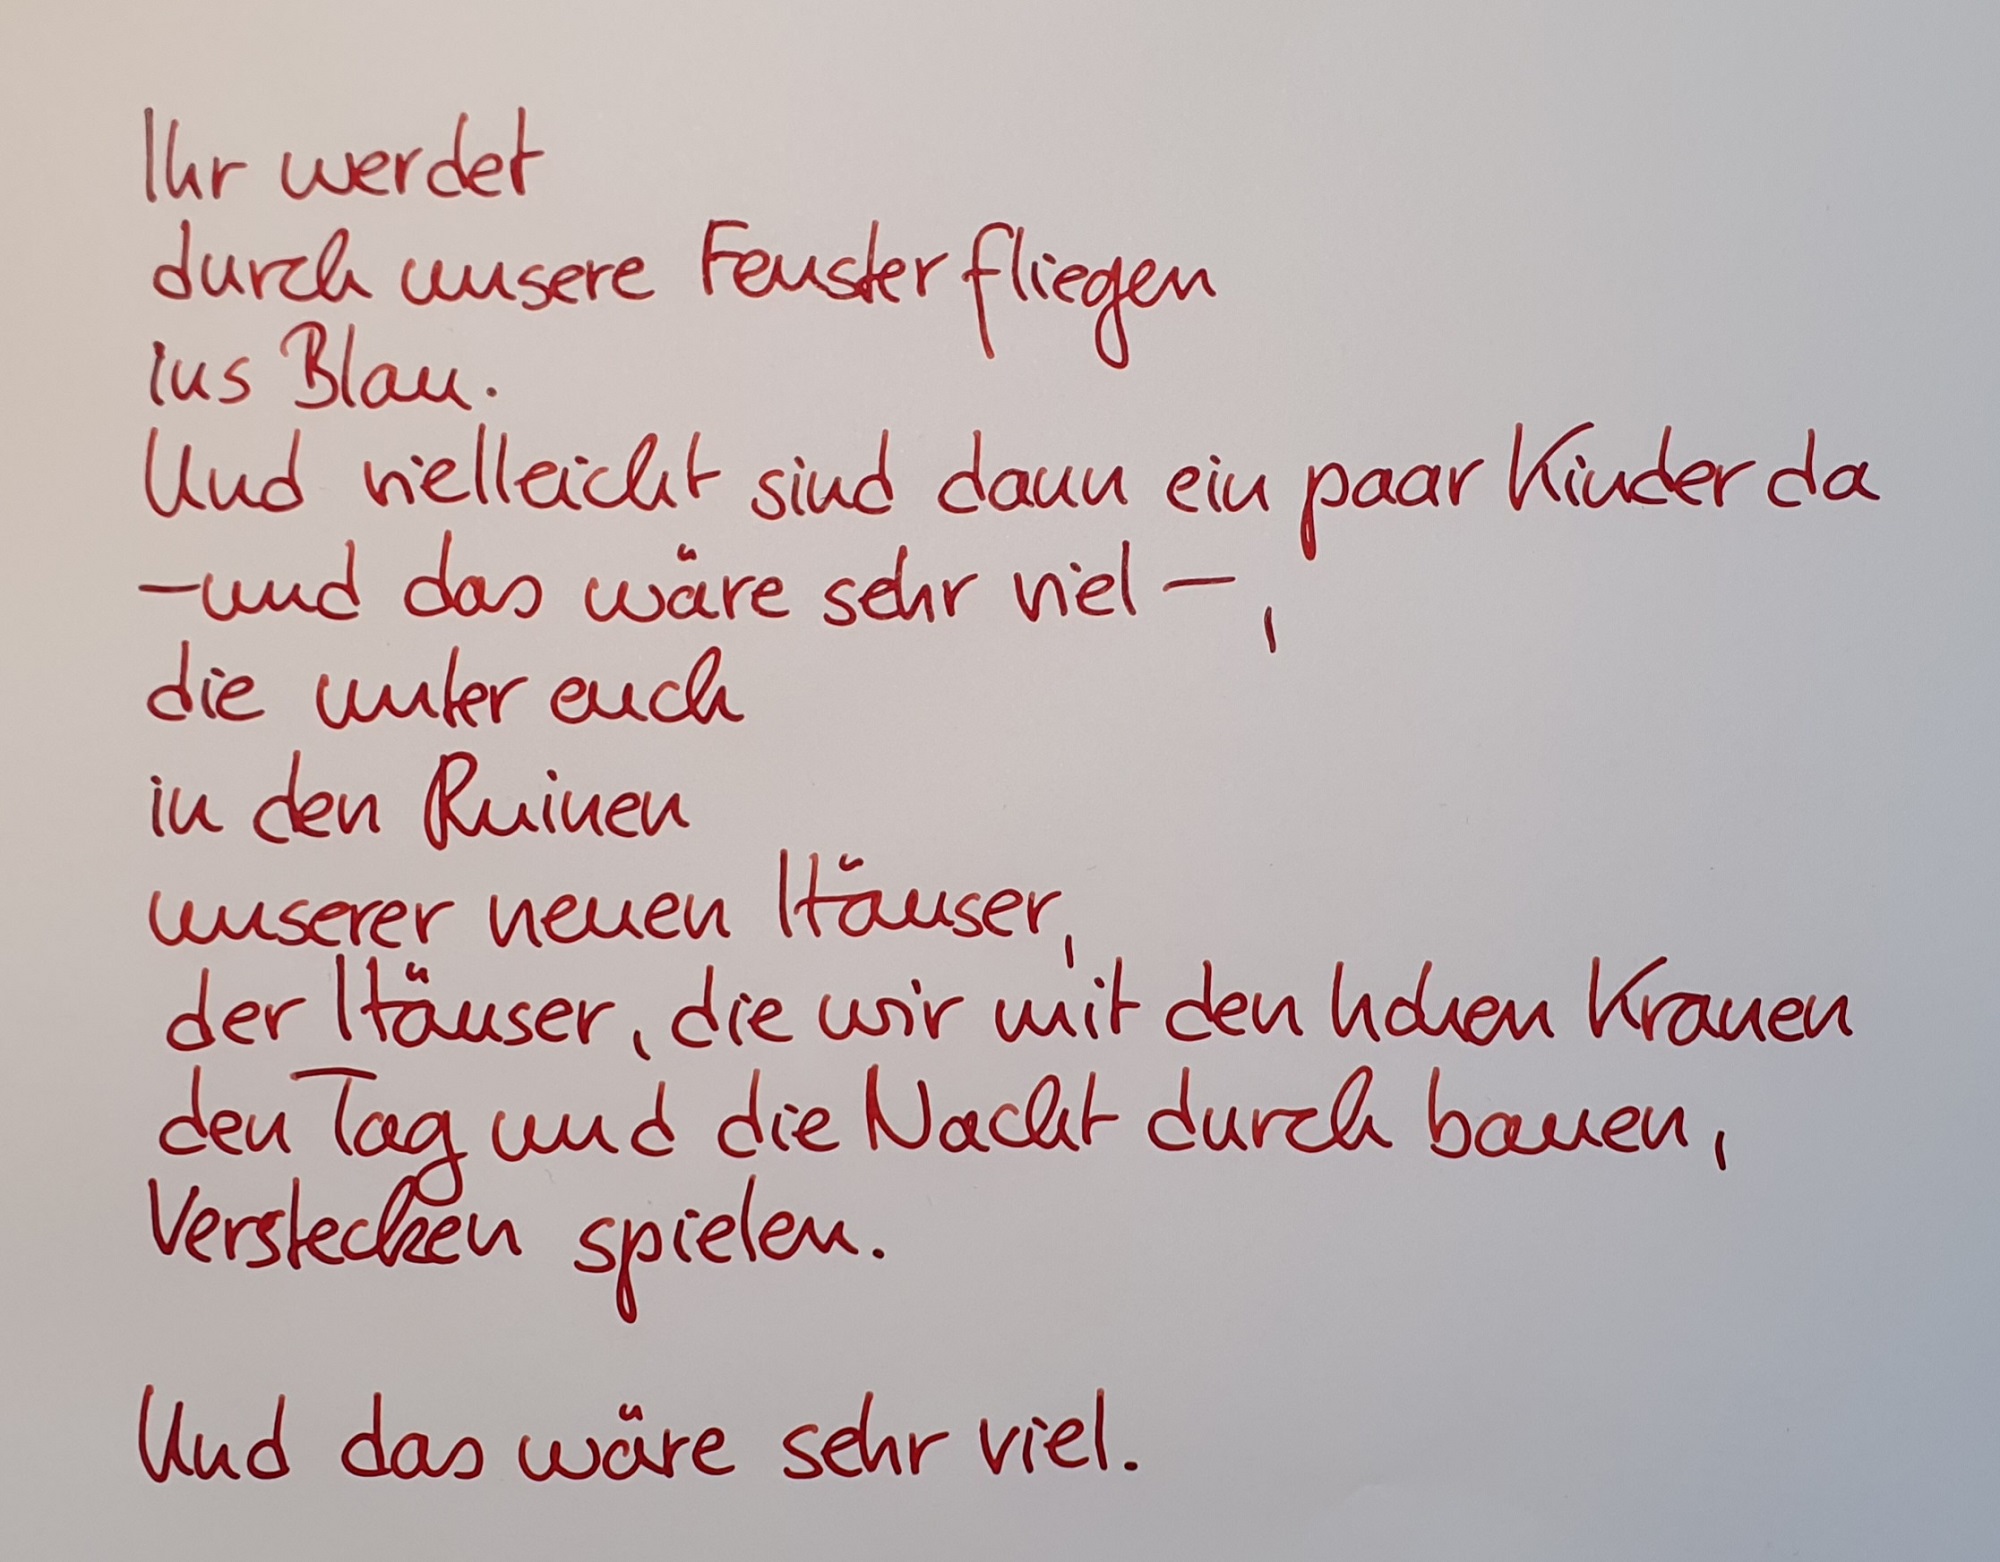 Ihr werdet
durch unsere Fenster fliegen
ins Blau.
Und vielleicht sind dann ein paar Kinder da
– und das wäre sehr viel –,
die unter euch
in den Ruinen
unserer neuen Häuser,
der Häuser, die wir mit den hohen Kranen
den Tag und die Nacht durch bauen,
Verstecken spielen.
Und das wäre sehr viel.